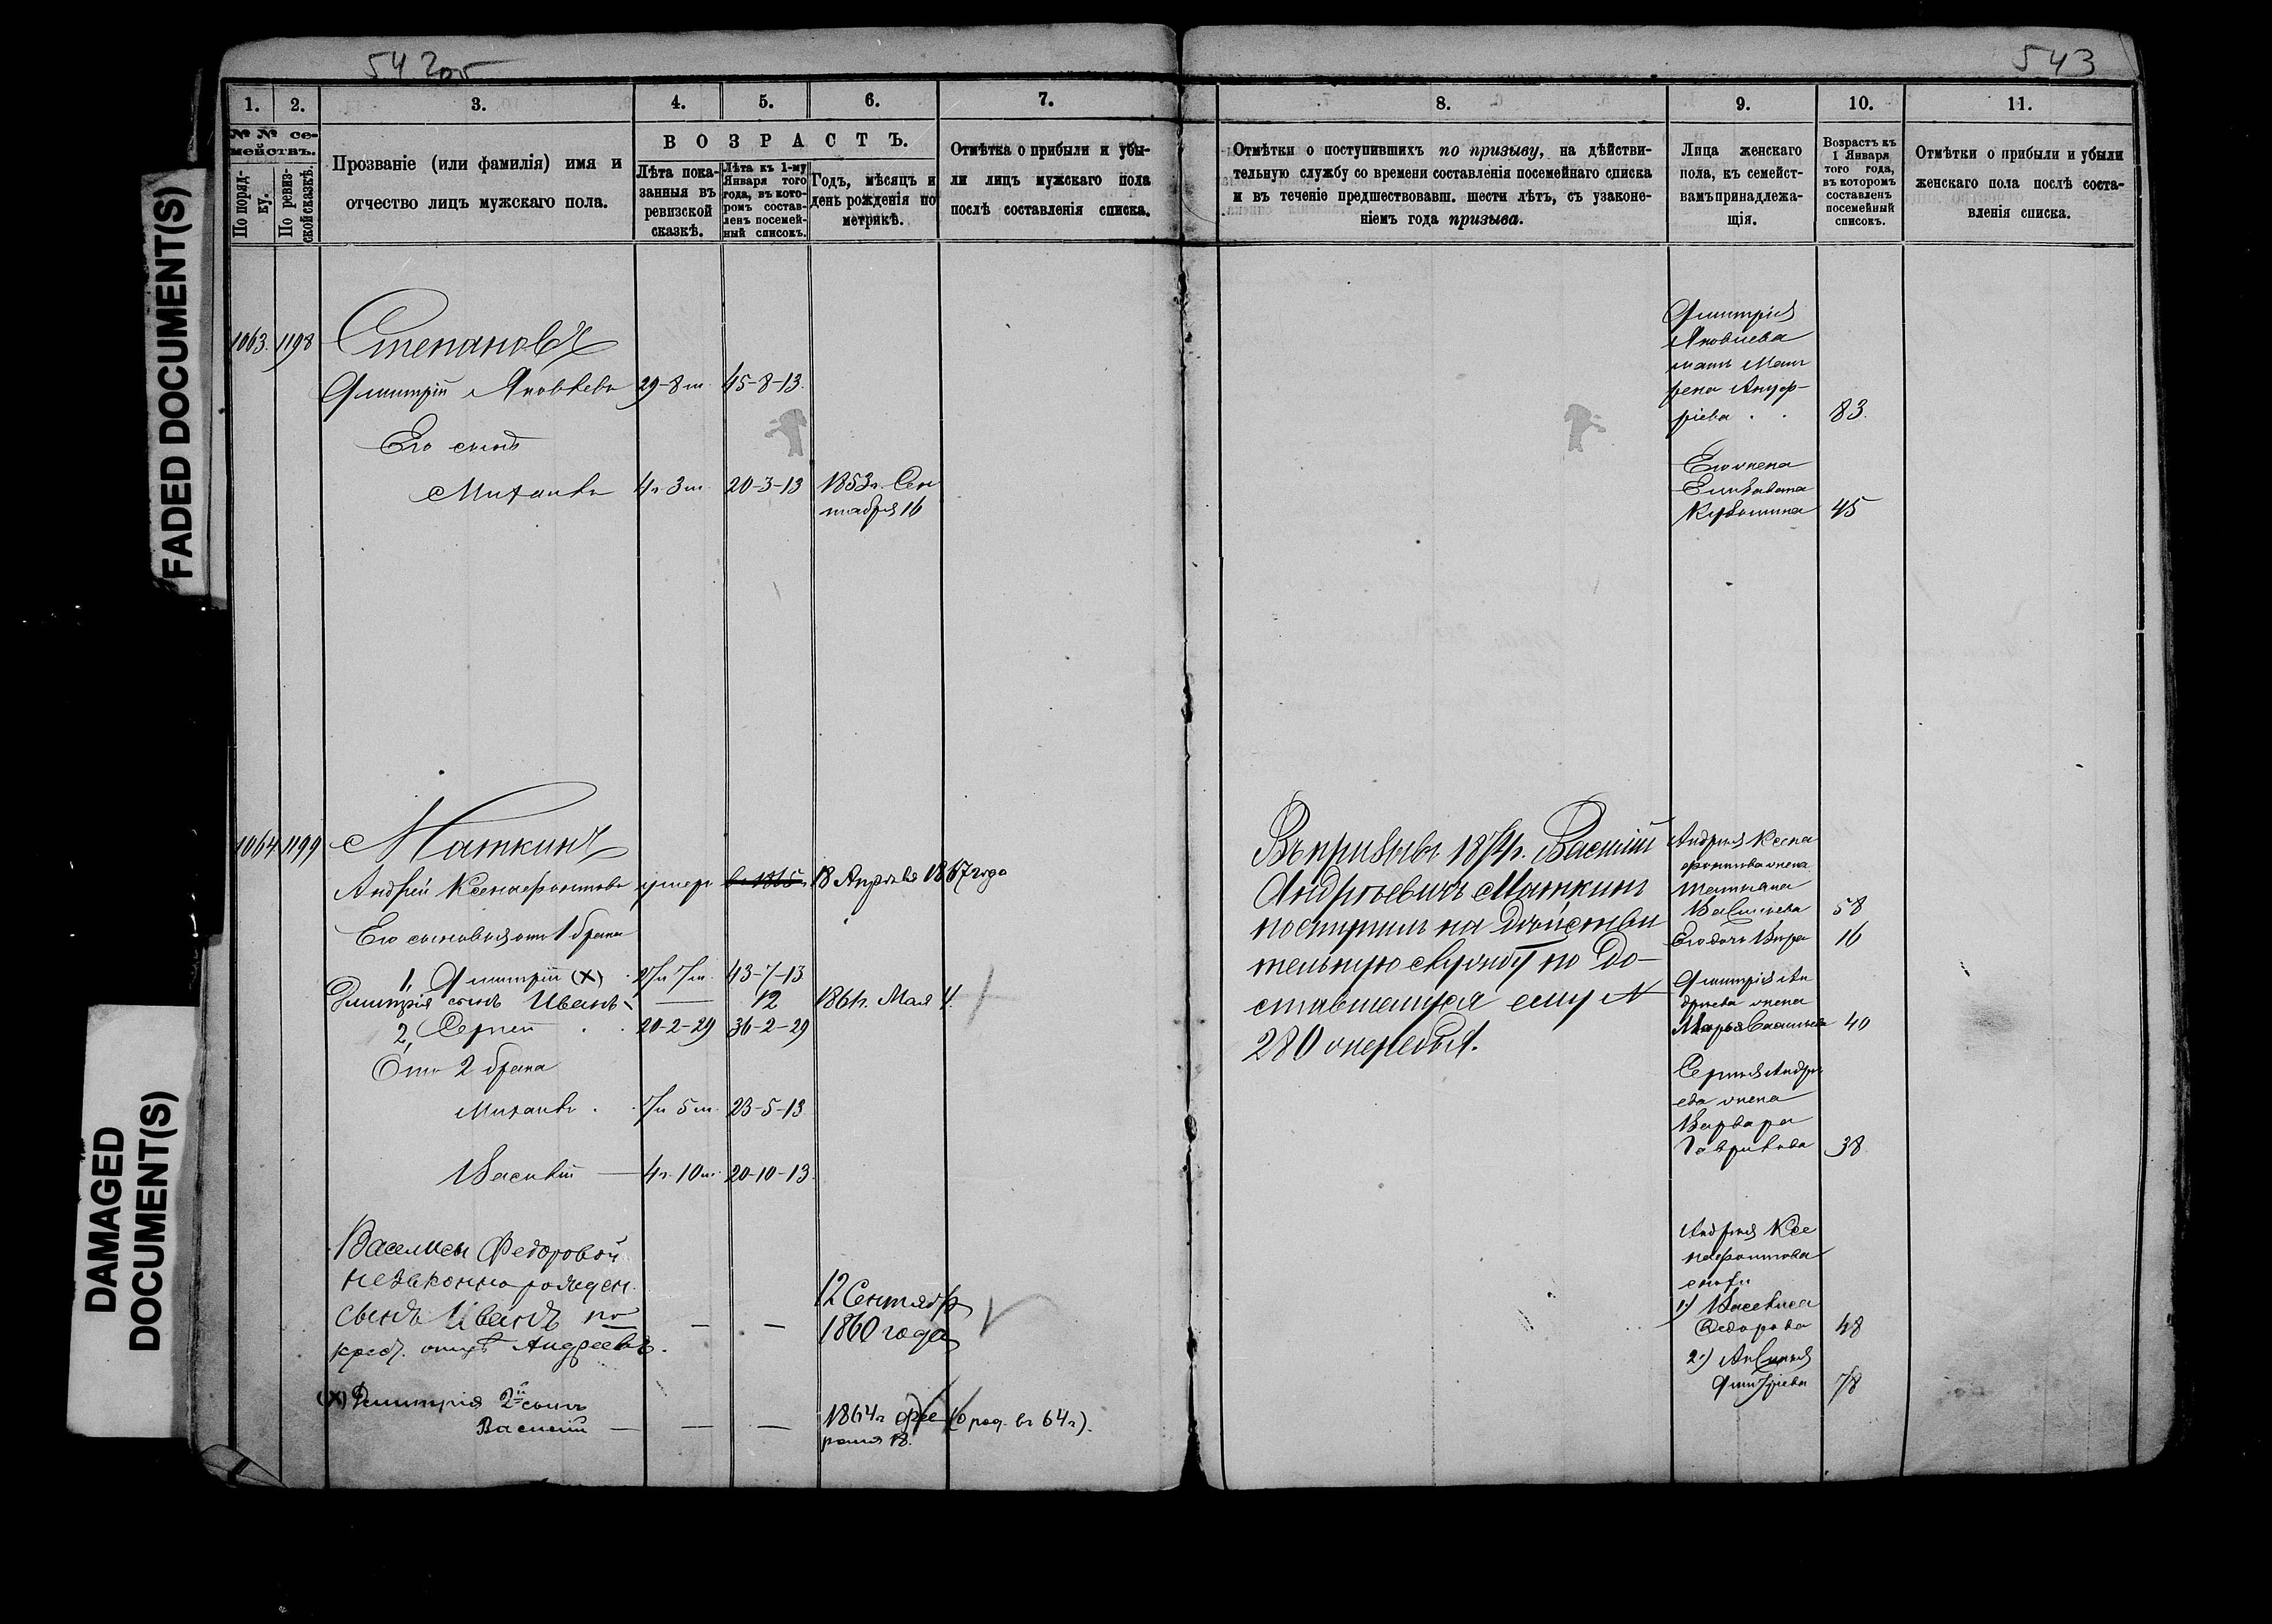 542об
543
FADED DOCUMENT(S)
DAMAGED
DOCUMENT(S)
1. 2. 3. 4. 5. 6. 7.
№ № се-
мействъ.
По поряд-
ку.
По ревиз-
ской сказкѣ.
Прозваніе (или фамилія) имя и
отчество лицъ мужскаго пола.
ВОЗРАСТЪ.
Лѣта пока-
занныя въ
ревизской
сказкѣ.
Лѣта къ 1-му
Января того
года, въ кото-
ромъ состав-
ленъ посемей-
ный списокъ.
Годъ, мѣсяцъ и
день рожденія по
метрикѣ.
Отмѣтка о прибыли и убы-
ли лицъ мужскаго пола
послѣ составленія списка.
1063. 1198 Степановъ
Дмитрій Яковлевъ 29-8 м. 45-8-13.
Его сынъ
Михаилъ 4 г. 3 м. 20-3-13 1853 г. Сен
тября 16
1064 1199 Маткинъ
Андрей Ксенофонтовъ умеръ в 1865 г. 18 Апрѣля 1867 года
Его сыновья отъ 1 брака
1, Дмитрій (X) 27 л 7 м. 43-7-13
Дмитрія сынъ Иванъ — 12 1861 г. Мая 4.
2, Сергей 20-2-29 36-2-29
Отъ 2 брака
Михаилъ 7 л 5 м. 23-5-13
Василій 4 г. 10 м. 20-10-13.
Василисы Федоровой
незаконнорожден.
сынъ Иванъ по
крест. отцѣ Андреевъ. — —
12 Сентябр
1860 года
(X) Дмитрія 2й сынъ
Василій — — — 1864 г. Фев
раля 18. (о род. въ 64 г.).
8. 9. 10. 11.
Отмѣтки о поступившихъ по призыву, на дѣйстви-
тельную службу со времени составленія посемейнаго списка
и въ теченіе предшествовавш. шести лѣтъ, съ узаконе-
ніемъ года призыва.
Лица женскаго
пола, къ семейст-
вамъ принадлежа-
щія.
Возрастъ къ
1 Января
того года,
въ которомъ
составленъ
посемейный
списокъ.
Отмѣтки о прибыли и убыли
женскаго пола послѣ соста-
вленія списка.
Дмитрія
Яковлева
мать Мат
рена Ануф-
ріева 83.
Его жена
Елизавета
Кузьмина 45
Въ призывъ 1874 г. Василій
Андреевичъ Маткинъ
поступилъ на дѣйстви
тельную службу по до-
ставшемуся ему №
280 жеребья.
Андрея Ксено
фонтова жена
Татьяна
Васильева 58
Его дочь Вѣра 16
Дмитрія Ан
дреева жена
Марья Васильева 40
Сергея Андре
ева жена
Варвара
Гаврилова 38.
Андрея Ксе
нофонтова
1) Василиса
Федорова 48
2.)
Дмитріева 78